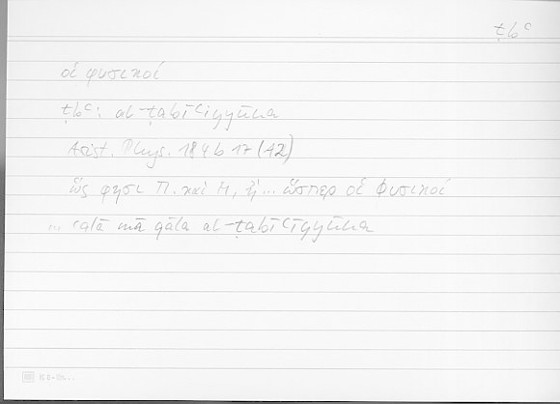 ṭbʿ
οἱ φυσικοί
ṭbʿ: al-ṭabīʿīyyūna
Arist. Phys. 184b17 (A2)
ὥς φησι Π. καὶ Μ, ἤ... ὥσπερ οἱ φυσικοί
... ʿalā mā qāla al-ṭabīʿīyyūna